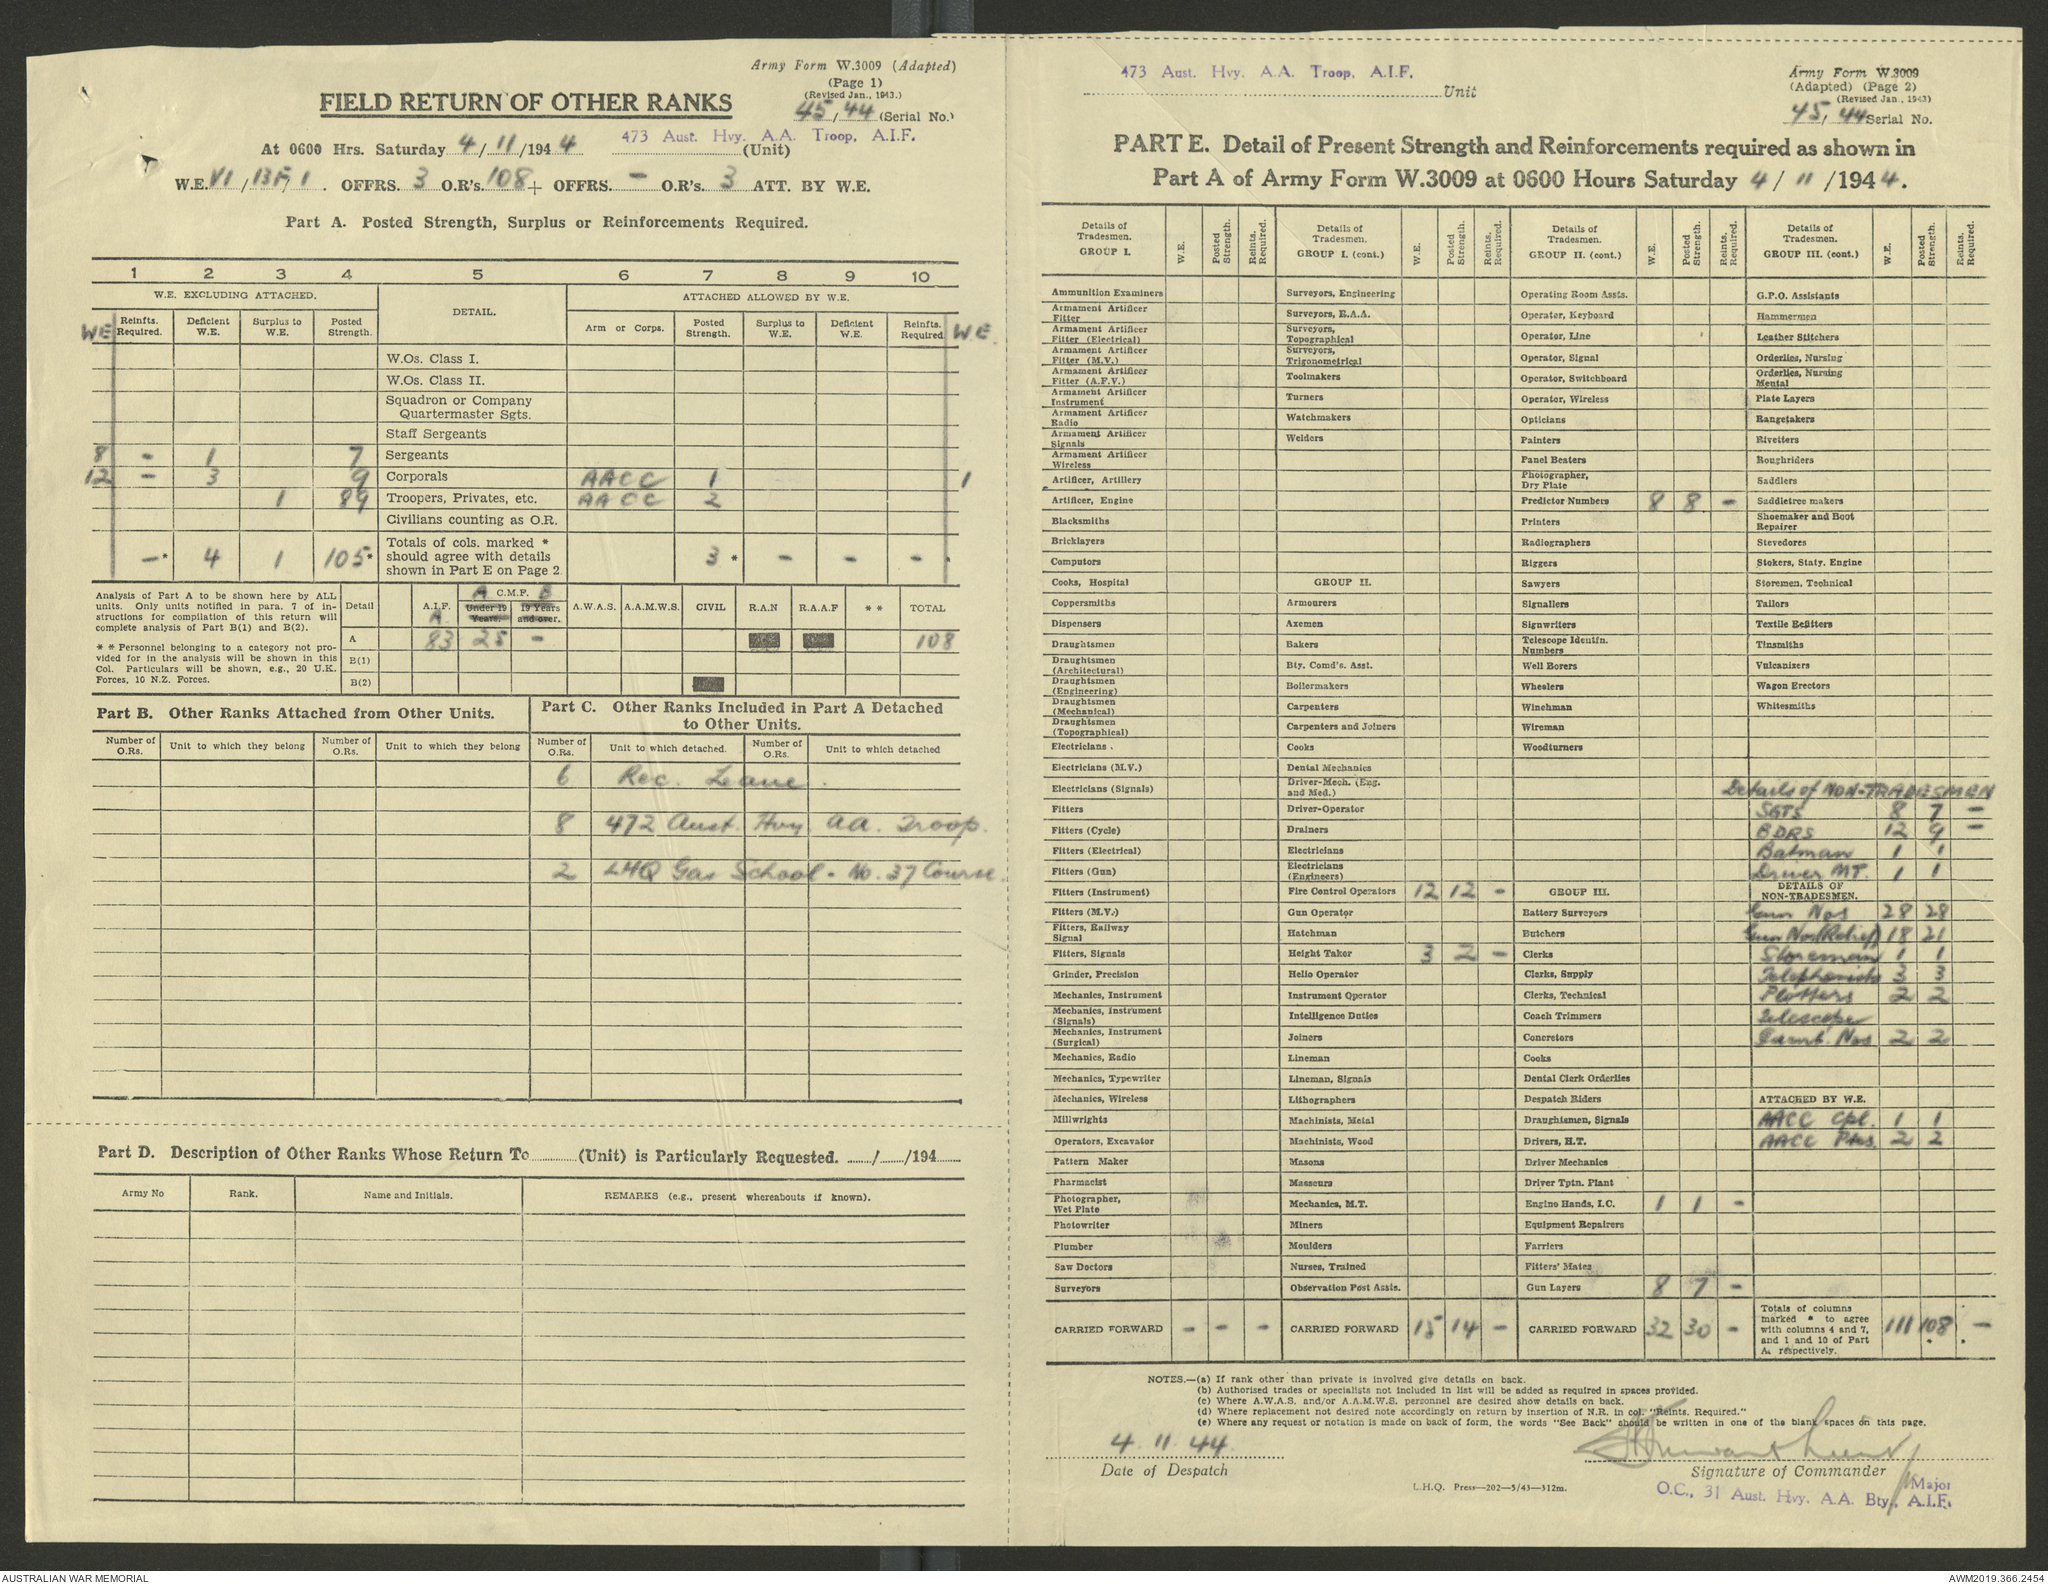 Army Form W.3009 (Adapted)
(Page 1)
(Revised Jan., 1943.)
45/44 (Serial No.)
FIELD RETURN OF OTHER RANKS
At 0600 Hrs. Saturday 4/11/1944 473 Aust. Hvy. A.A. Troop, A.I.F. (Unit)
W.E. VI/13F/1. OFFRS. 3 O.R's. 108 + OFFRS. - O.R's. 3 ATT. BY W.E.
Part A. Posted Strength, Surplus or Reinforcements Required.
1 2 3 4 5 6 7 8 9 10
W.E. EXCLUDING ATTACHED. DETAIL. ATTACHED ALLOWED BY W.E.
WE Reinfts. Required. Deficient W.E. Surplus to W.E. Posted Strength. Arm or Corps. Posted Strength. Surplus to W.E. Deficient W.E. Reinfts. Required W.E.
W.Os. Class I.
W.Os. Class II.
Squadron or Company Quartermaster Sgts.
Staff Sergeants
8 - 1 7 Sergeants
12 - 3 9 Corporals AACC 1 1
1 89 Troopers, Privates, etc. AACC 2
Civilians counting as O.R.
-* 4 1 105* Totals of cols. marked * should agree with details shown in Part E on Page 2 3* - - -
Analysis of Part A to be shown here by ALL units. Only units notified in para. 7 of instructions for compilation of this return will complete analysis of Part B(1) and B(2).
* * Personnel belonging to a category not provided for in the analysis will be shown in this Col. Particulars will be shown, e.g., 20 U.K. Forces, 10 N.Z. Forces.
Detail A.I.F. A. A C.M.F. B Under 19 Years. 19 Years and over. A.W.A.S. A.A.M.W.S. CIVIL R.A.N R.A.A.F * * TOTAL
A 83 25 - 108
B(1)
B(2)
Part B. Other Ranks Attached from Other Units.
Number of O.Rs. Unit to which they belong Number of O.Rs. Unit to which they belong
Part C. Other Ranks Included in Part A Detached to Other Units.
Number of O.Rs. Unit to which detached. Number of O.Rs. Unit to which detached
6 Rec. Leave.
8 472 Aust. Hvy. AA. Troop.
2 LHQ Gas School - No. 37 Course.
Part D. Description of Other Ranks Whose Return To (Unit) is Particularly Requested. / /194
Army No Rank. Name and Initials. REMARKS (e.g., present whereabouts if known).
473 Aust. Hvy. A.A. Troop, A.I.F. Unit
Army Form W.3009
(Adapted) (Page 2)
(Revised Jan., 1943)
45/44 Serial No.
PART E. Detail of Present Strength and Reinforcements required as shown in
Part A of Army Form W.3009 at 0600 Hours Saturday 4/11/1944.
Details of Tradesmen. GROUP I. W.E. Posted Strength. Reints. Required.
Ammunition Examiners
Armament Artificer Fitter
Armament Artificer Fitter (Electrical)
Armament Artificer Fitter (M.V.)
Armament Artificer Fitter (A.F.V.)
Armament Artificer Instrument
Armament Artificer Radio
Armament Artificer Signals
Armament Artificer Wireless
Artificer, Artillery
Artificer, Engine
Blacksmiths
Bricklayers
Computors
Cooks, Hospital
Coppersmiths
Dispensers
Draughtsmen
Draughtsmen (Architectural)
Draughtsmen (Engineering)
Draughtsmen (Mechanical)
Draughtsmen (Topographical)
Electricians
Electricians (M.V.)
Electricians (Signals)
Fitters
Fitters (Cycle)
Fitters (Electrical)
Fitters (Gun)
Fitters (Instrument)
Fitters (M.V.)
Fitters, Railway Signal
Fitters, Signals
Grinder, Precision
Mechanics, Instrument
Mechanics, Instrument (Signals)
Mechanics, Instrument (Surgical)
Mechanics, Radio
Mechanics, Typewriter
Mechanics, Wireless
Millwrights
Operators, Excavator
Pattern Maker
Pharmacist
Photographer, Wet Plate
Photowriter
Plumber
Saw Doctors
Surveyors
CARRIED FORWARD - - -
Details of Tradesmen. GROUP I. (cont.) W.E. Posted Strength. Reints. Required.
Surveyors, Engineering
Surveyors, R.A.A.
Surveyors, Topographical
Surveyors, Trigonometrical
Toolmakers
Turners
Watchmakers
Welders
GROUP II.
Armourers
Axemen
Bakers
Bty. Comd's. Asst.
Boilermakers
Carpenters
Carpenters and Joiners
Cooks
Dental Mechanics
Driver-Mech. (Eng. and Med.)
Driver-Operator
Drainers
Electricians
Electricians (Engineers)
Fire Control Operators 12 12 -
Gun Operator
Hatchman
Height Taker 3 2 -
Helio Operator
Instrument Operator
Intelligence Duties
Joiners
Lineman
Lineman, Signals
Lithographers
Machinists, Metal
Machinists, Wood
Masons
Masseurs
Mechanics, M.T.
Miners
Moulders
Nurses, Trained
Observation Post Assts.
CARRIED FORWARD 15 14 -
Details of Tradesmen. GROUP II. (cont.) W.E. Posted Strength. Reints. Required.
Operating Room Assts.
Operator, Keyboard
Operator, Line
Operator, Signal
Operator, Switchboard
Operator, Wireless
Opticians
Painters
Panel Beaters
Photographer, Dry Plate
Predictor Numbers 8 8 -
Printers
Radiographers
Riggers
Sawyers
Signallers
Signwriters
Telescope Identin. Numbers
Well Borers
Wheelers
Winchman
Wireman
Woodturners
GROUP III.
Battery Surveyors
Butchers
Clerks
Clerks, Supply
Clerks, Technical
Coach Trimmers
Concretors
Cooks
Dental Clerk Orderlies
Despatch Riders
Draughtsmen, Signals
Drivers, H.T.
Driver Mechanics
Driver Tptn. Plant
Engine Hands, I.C. 1 1 -
Equipment Repairers
Farriers
Fitters' Mates
Gun Layers 8 7 -
CARRIED FORWARD 32 30 -
Details of Tradesmen. GROUP III. (cont.) W.E. Posted Strength. Reints. Required.
G.P.O. Assistants
Hammermen
Leather Stitchers
Orderlies, Nursing
Orderlies, Nursing Mental
Plate Layers
Rangetakers
Rivetters
Roughriders
Saddlers
Saddletree makers
Shoemaker and Boot Repairer
Stevedores
Stokers, Staty. Engine
Storemen, Technical
Tailors
Textile Refitters
Tinsmiths
Vulcanizers
Wagon Erectors
Whitesmiths
Details of NON-TRADESMEN
SGTS 8 7 -
BDRS 12 9 -
Batman 1 1
Driver MT. 1 1
DETAILS OF NON-TRADESMEN.
Gun Nos 28 28
Gun Nos (Relief) 18 21
Storeman 1 1
Telephonists 3 3
Plotters 2 2
Telescope
Ident. Nos 2 2
ATTACHED BY W.E.
AACC Cpl. 1 1
AACC Ptes. 2 2
Totals of columns marked * to agree with columns 4 and 7, and 1 and 10 of Part A. respectively. 111 108 -
NOTES.—(a) If rank other than private is involved give details on back.
(b) Authorised trades or specialists not included in list will be added as required in spaces provided.
(c) Where A.W.A.S. and/or A.A.M.W.S. personnel are desired show details on back.
(d) Where replacement not desired note accordingly on return by insertion of N.R. in col. "Reints. Required."
(e) Where any request or notation is made on back of form, the words "See Back" should be written in one of the blank spaces on this page.
4.11.44.
Date of Despatch
Signature of Commander
L.H.Q. Press—202—5/43—312m.
Major
O.C., 31 Aust. Hvy. A.A. Bty., A.I.F.
AUSTRALIAN WAR MEMORIAL
AWM2019.366.2454